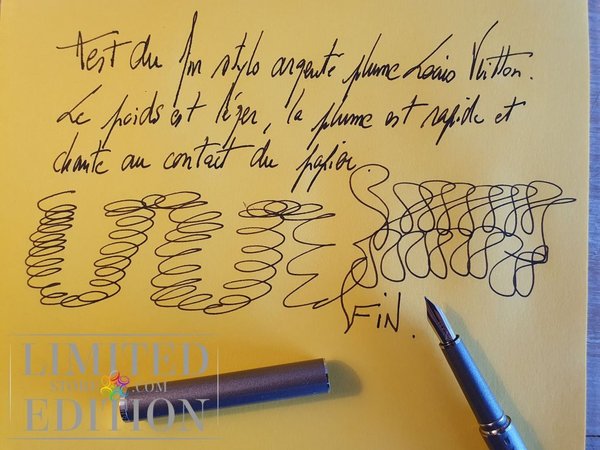 Test du fin stylo argenté plume Louis Vuitton.
Le poids est léger, la plume est rapide et
chante au contact du papier.
FIN.
LIMITED
STORE .COM
EDITION